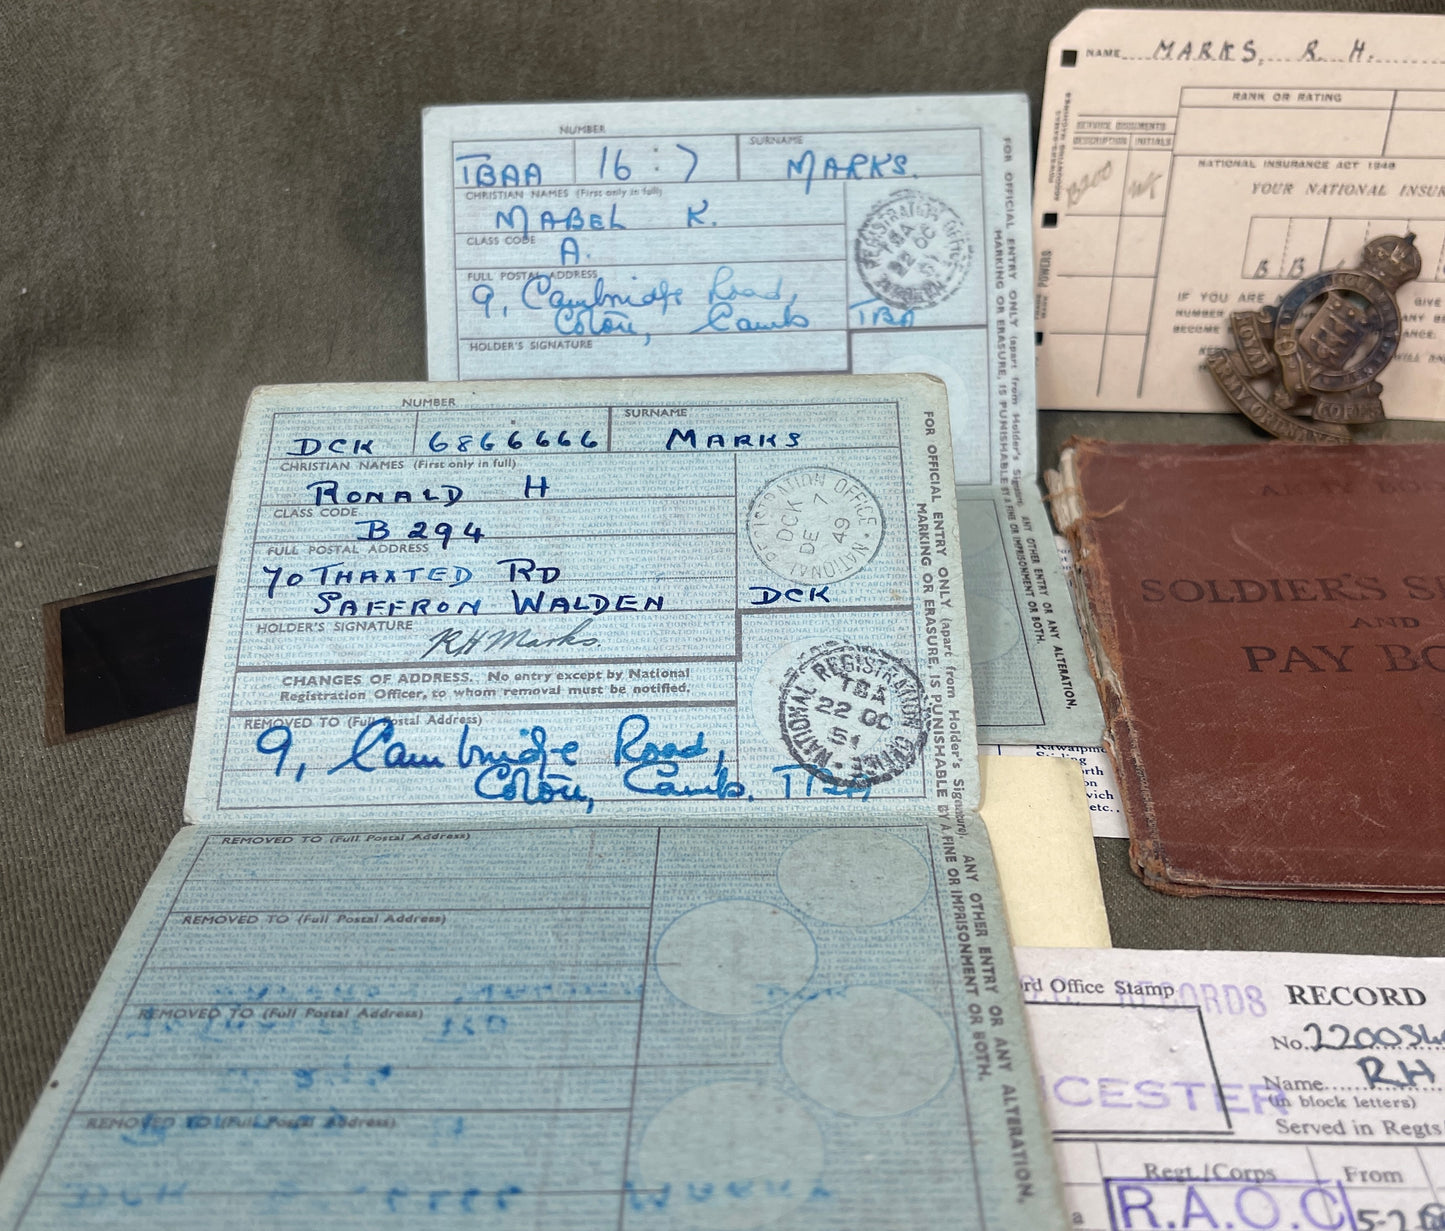 NUMBER
SURNAME
TBAA 16:7 MARKS.
CHRISTIAN NAMES (First only in full)
MABEL K.
CLASS CODE
A.
FULL POSTAL ADDRESS
9, Cambridge Road,
Coton, Cambs TBA
HOLDER'S SIGNATURE
REGISTRATION OFFICE
TBA
22 OC
51
FOR OFFICIAL ENTRY ONLY (apart from Holder's
MARKING OR ERASURE, IS PUNISHABLE BY A FINE OR IMPRISONMENT OR BOTH.
ANY OTHER ENTRY OR ANY ALTERATION,
NUMBER
SURNAME
DCK 6866666 MARKS
CHRISTIAN NAMES (First only in full)
RONALD H
CLASS CODE
B 294
FULL POSTAL ADDRESS
70 THAXTED RD
SAFFRON WALDEN
DCK
HOLDER'S SIGNATURE
RH Marks.
OFFICE
DCK 7
DE 49
NATIONAL
CHANGES OF ADDRESS. No entry except by National
Registration Officer, to whom removal must be notified.
REMOVED TO (Full Postal Address)
9, Cambridge Road,
Coton, Cambs. TBA
NATIONAL REGISTRATION OFFICE
TBA
22 OC
51
FOR OFFICIAL ENTRY ONLY (apart from Holder's Signature). ANY OTHER ENTRY OR ANY ALTERATION,
MARKING OR ERASURE, IS PUNISHABLE BY A FINE OR IMPRISONMENT OR BOTH.
REMOVED TO (Full Postal Address)
REMOVED TO (Full Postal Address)
REMOVED TO (Full Postal Address)
REMOVED TO (Full Postal Address)
NAME MARKS, R. H.
RANK OR RATING
SERVICE DOCUMENTS
DESCRIPTION INITIALS
B200
NATIONAL INSURANCE ACT 1946
YOUR NATIONAL INSUR
B B
IF YOU ARE
GIVE
NUMBER
ANY
BECOME
POWERS
ROYAL
ARMY ORDNANCE
CORPS
ARMY BOO
SOLDIER'S SE
AND
PAY BO
orth
on
vich
etc.
rd Office Stamp
RECORDS
CESTER
RECORD
No. 220034
Name RH
(in block letters)
Served in Regts
Regt./Corps From
a R.A.O.C